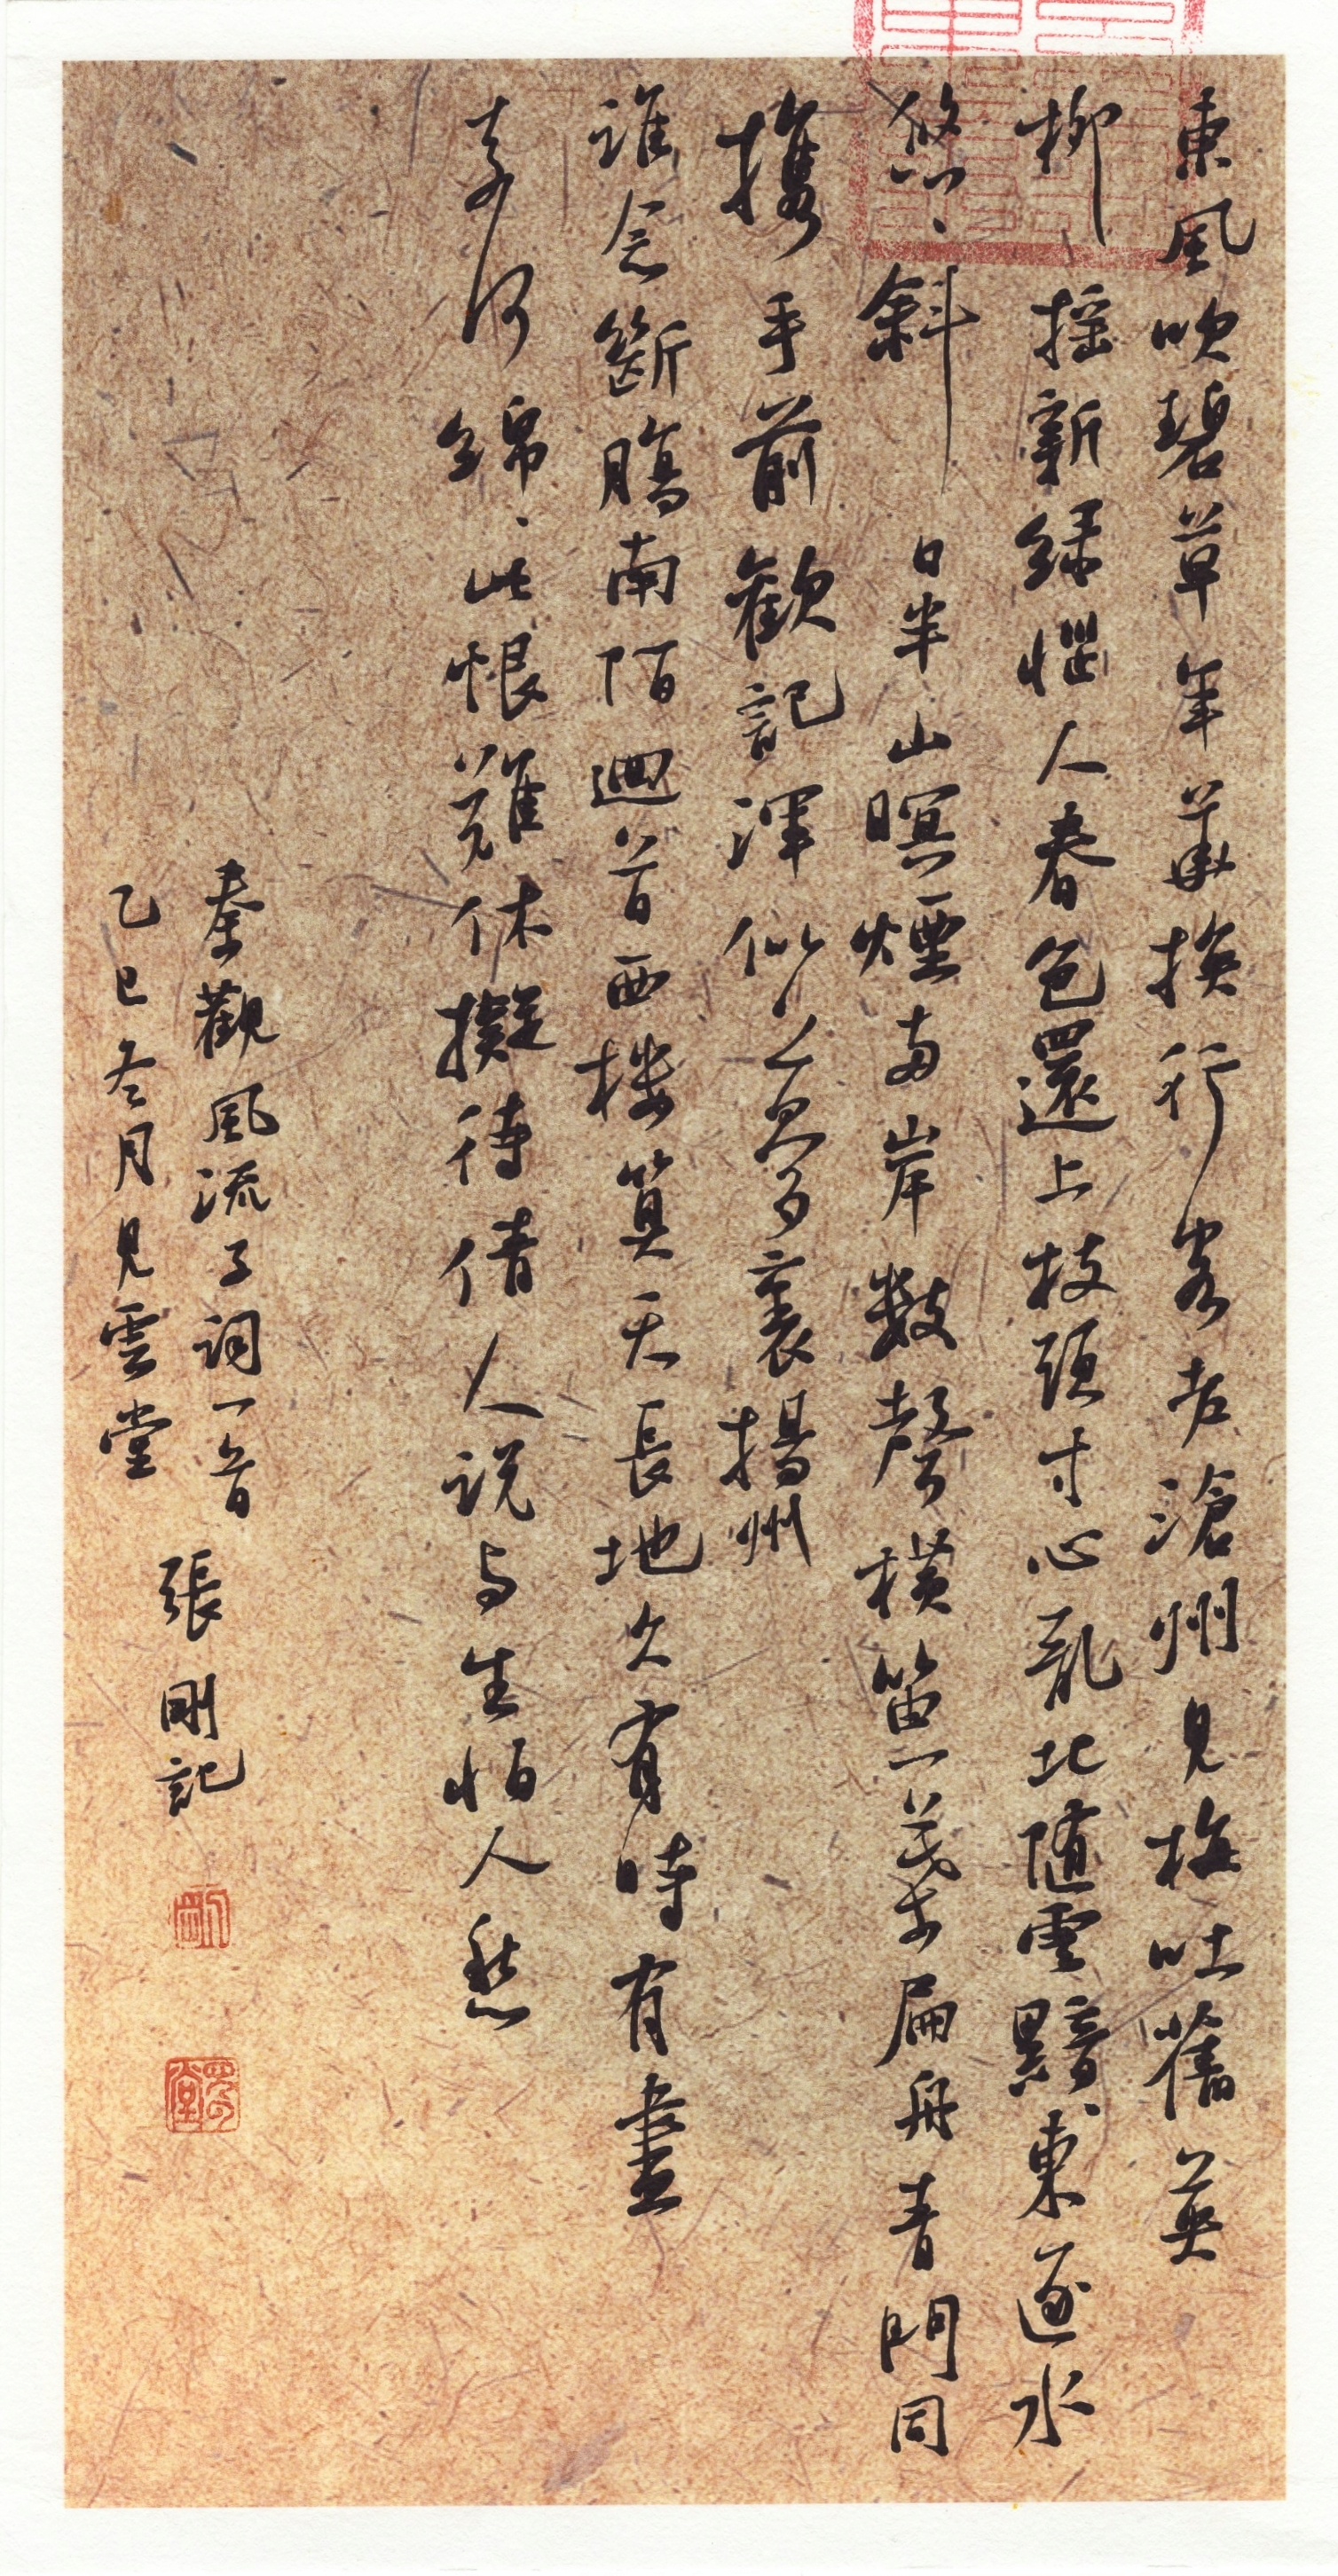 東風吹碧草年華換行客老滄州見梅吐舊英
柳摇新緑惱人春色還上枝頭寸心亂北随雲黯東逐水
悠、斜日半山暝煙两岸數聲横笛一葉扁舟青門同
攜手前歡記渾似夢裏揚州
誰念斷腸南陌迴首西楼算天長地久有時有盡
奈何綿、此恨難休擬待倩人説与生怕人愁
秦觀風流子詞一首
乙巳冬月見雲堂
張剛記